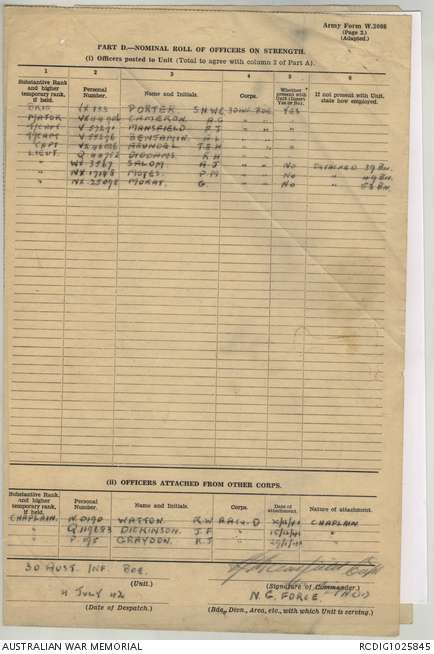 Army Form W.3008
(Page 3.)
(Adapted.)
PART D.—NOMINAL ROLL OF OFFICERS ON STRENGTH.
(i) Officers posted to Unit (Total to agree with column 2 of Part A).
1 2 3 4 5 6
Substantive Rank and higher temporary rank, if held. Personal Number. Name and Initials. Corps. Whether present with Unit (Insert Yes or No). If not present with Unit, state how employed.
PORTER S.H.W.C. 30 INF BDE YES
MAJOR CAMERON A.G. " " "
T/CAPT MANSFIELD " " "
T/CAPT BENJAMIN " " "
CAPT ARUNDEL " " "
LIEUT. DIDDAMS K H " " "
" SALOM A J " " NO DETACHED 39 BN.
" NX 17148 P M " " NO " 49 BN.
" NX 25098 G. " " NO " 53 BN.
(ii) OFFICERS ATTACHED FROM OTHER CORPS.
Substantive Rank and higher temporary rank, if held. Personal Number. Name and Initials. Corps. Date of attachment. Nature of attachment.
CHAPLAIN WATSON R W AACh. D CHAPLAIN
" DICKINSON J F " "
" GRAYDON " "
30 AUST. INF. BDE.
(Unit.)
(Signature of Commander.)
4 JULY 42
N.G. FORCE
(Date of Despatch.)
(Bde, Divn., Area, etc., with which Unit is serving.)
AUSTRALIAN WAR MEMORIAL
RCDIG1025845